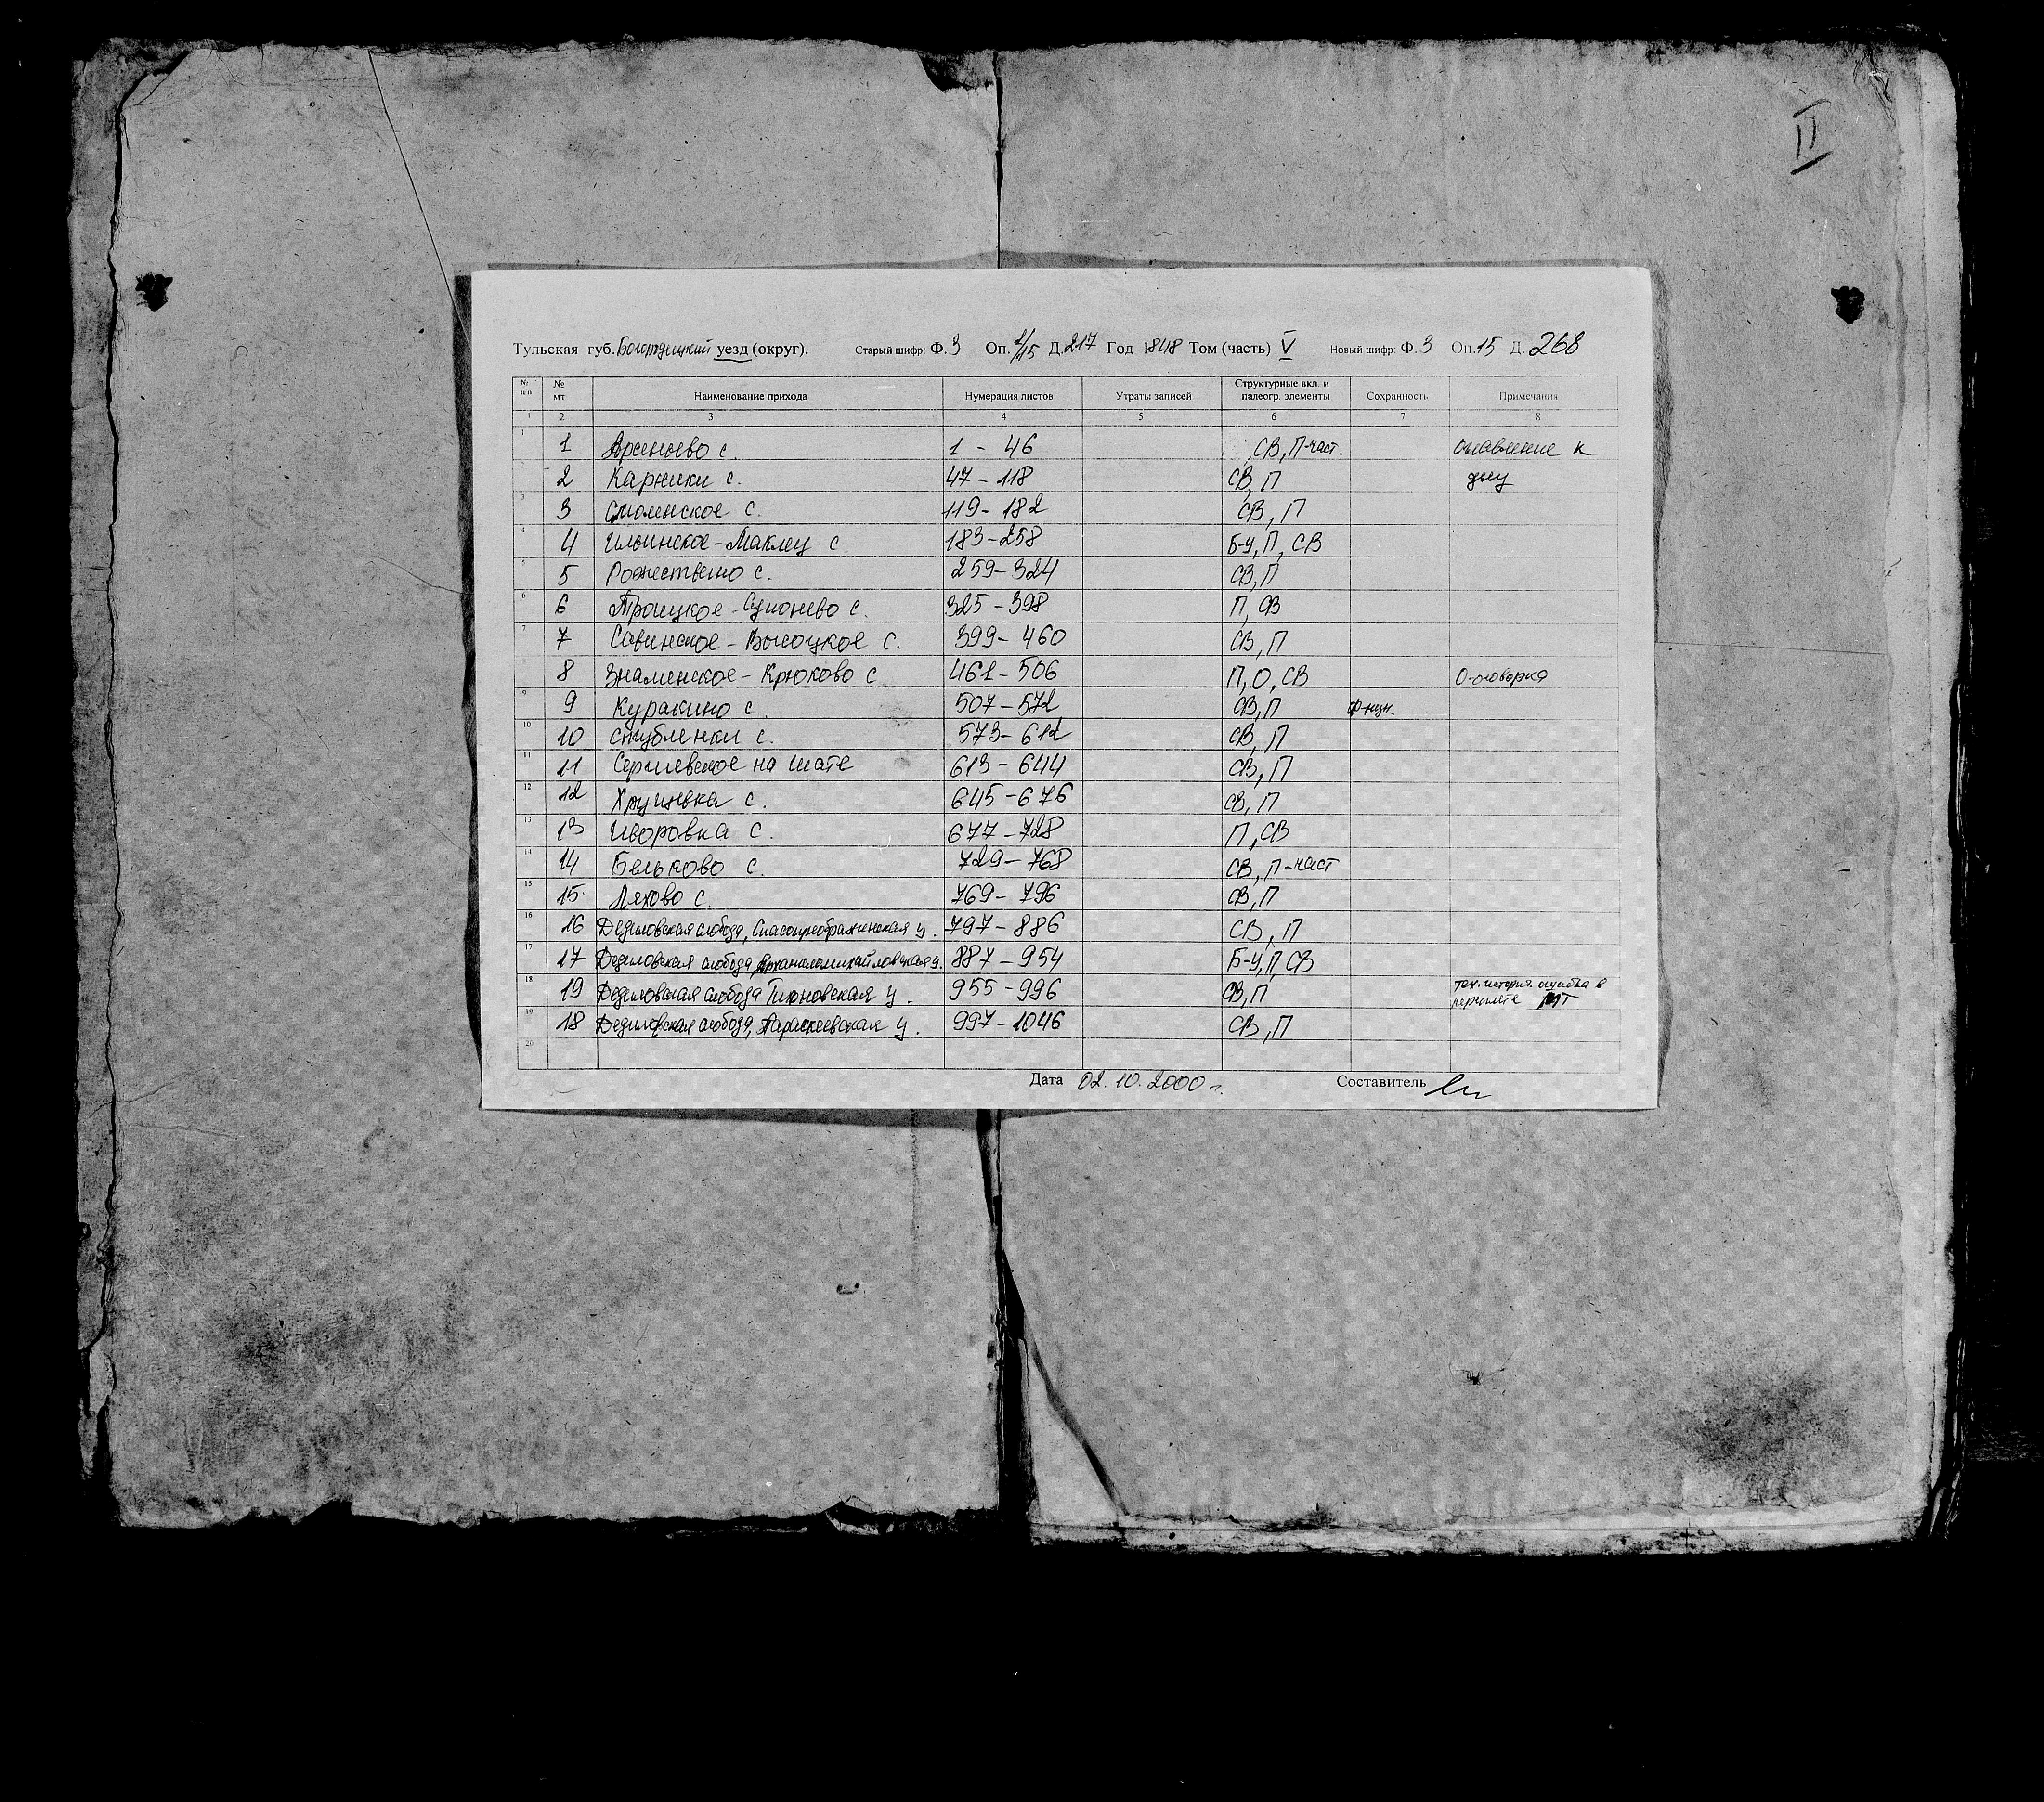 II
Тульская губ. Богородицкий уезд (округ). Старый шифр: Ф. 3 Оп. 1/15 Д. 217 Год 1848 Том (часть) V Новый шифр: Ф. 3 Оп. 15 Д. 268
№ п п № мт Наименование прихода Нумерация листов Утраты записей Структурные вкл. и палеогр. элементы Сохранность Примечания
1 2 3 4 5 6 7 8
1 1 Арсеньево с. 1 - 46 СВ, П-част. Оглавление к
2 Карники с. 47 - 118 СВ, П делу
3 3 Смоленское с. 119 - 182 СВ, П
4 4 Ильинское-Маклец с 183-258 Б-у, П, СВ
5 5 Рождествено с. 259-324 СВ, П
6 6 Троицкое - с. 325 - 398 П, СВ
7 7 Савинское - Высоцкое с. 399 - 460 СВ, П
8 Знаменское - Крюково с 461 - 506 П, О, СВ О-оговорка
9 9 Куракино с. 507 - 572 СВ, П
10 10 с. 573 - 612 СВ, П
11 11 Сергиевское на Шате 613 - 644 СВ, П
12 12 Хрущевка с. 645 - 676 СВ, П
13 13 Иворовка с. 677 - 728 П, СВ
14 14 Бельково с. 729 - 768 СВ, П-част
15 15. Ляхово с. 769 - 796 СВ, П
16 16 Дедиловская слобода, Спасопреображенская ц. 797 - 886 СВ, П
17 17 Дедиловская слобода, Архангеломихайловская ц. 887 - 954 Б-у, П, СВ
18 19 Дедиловская слобода Тихоновская ц. 955 - 996 СВ, П ошибка в
МТ
19 18 Дедиловская слобода, Параскеевская ц. 997 - 1046 СВ, П
20
Дата 02.10.2000 г. Составитель